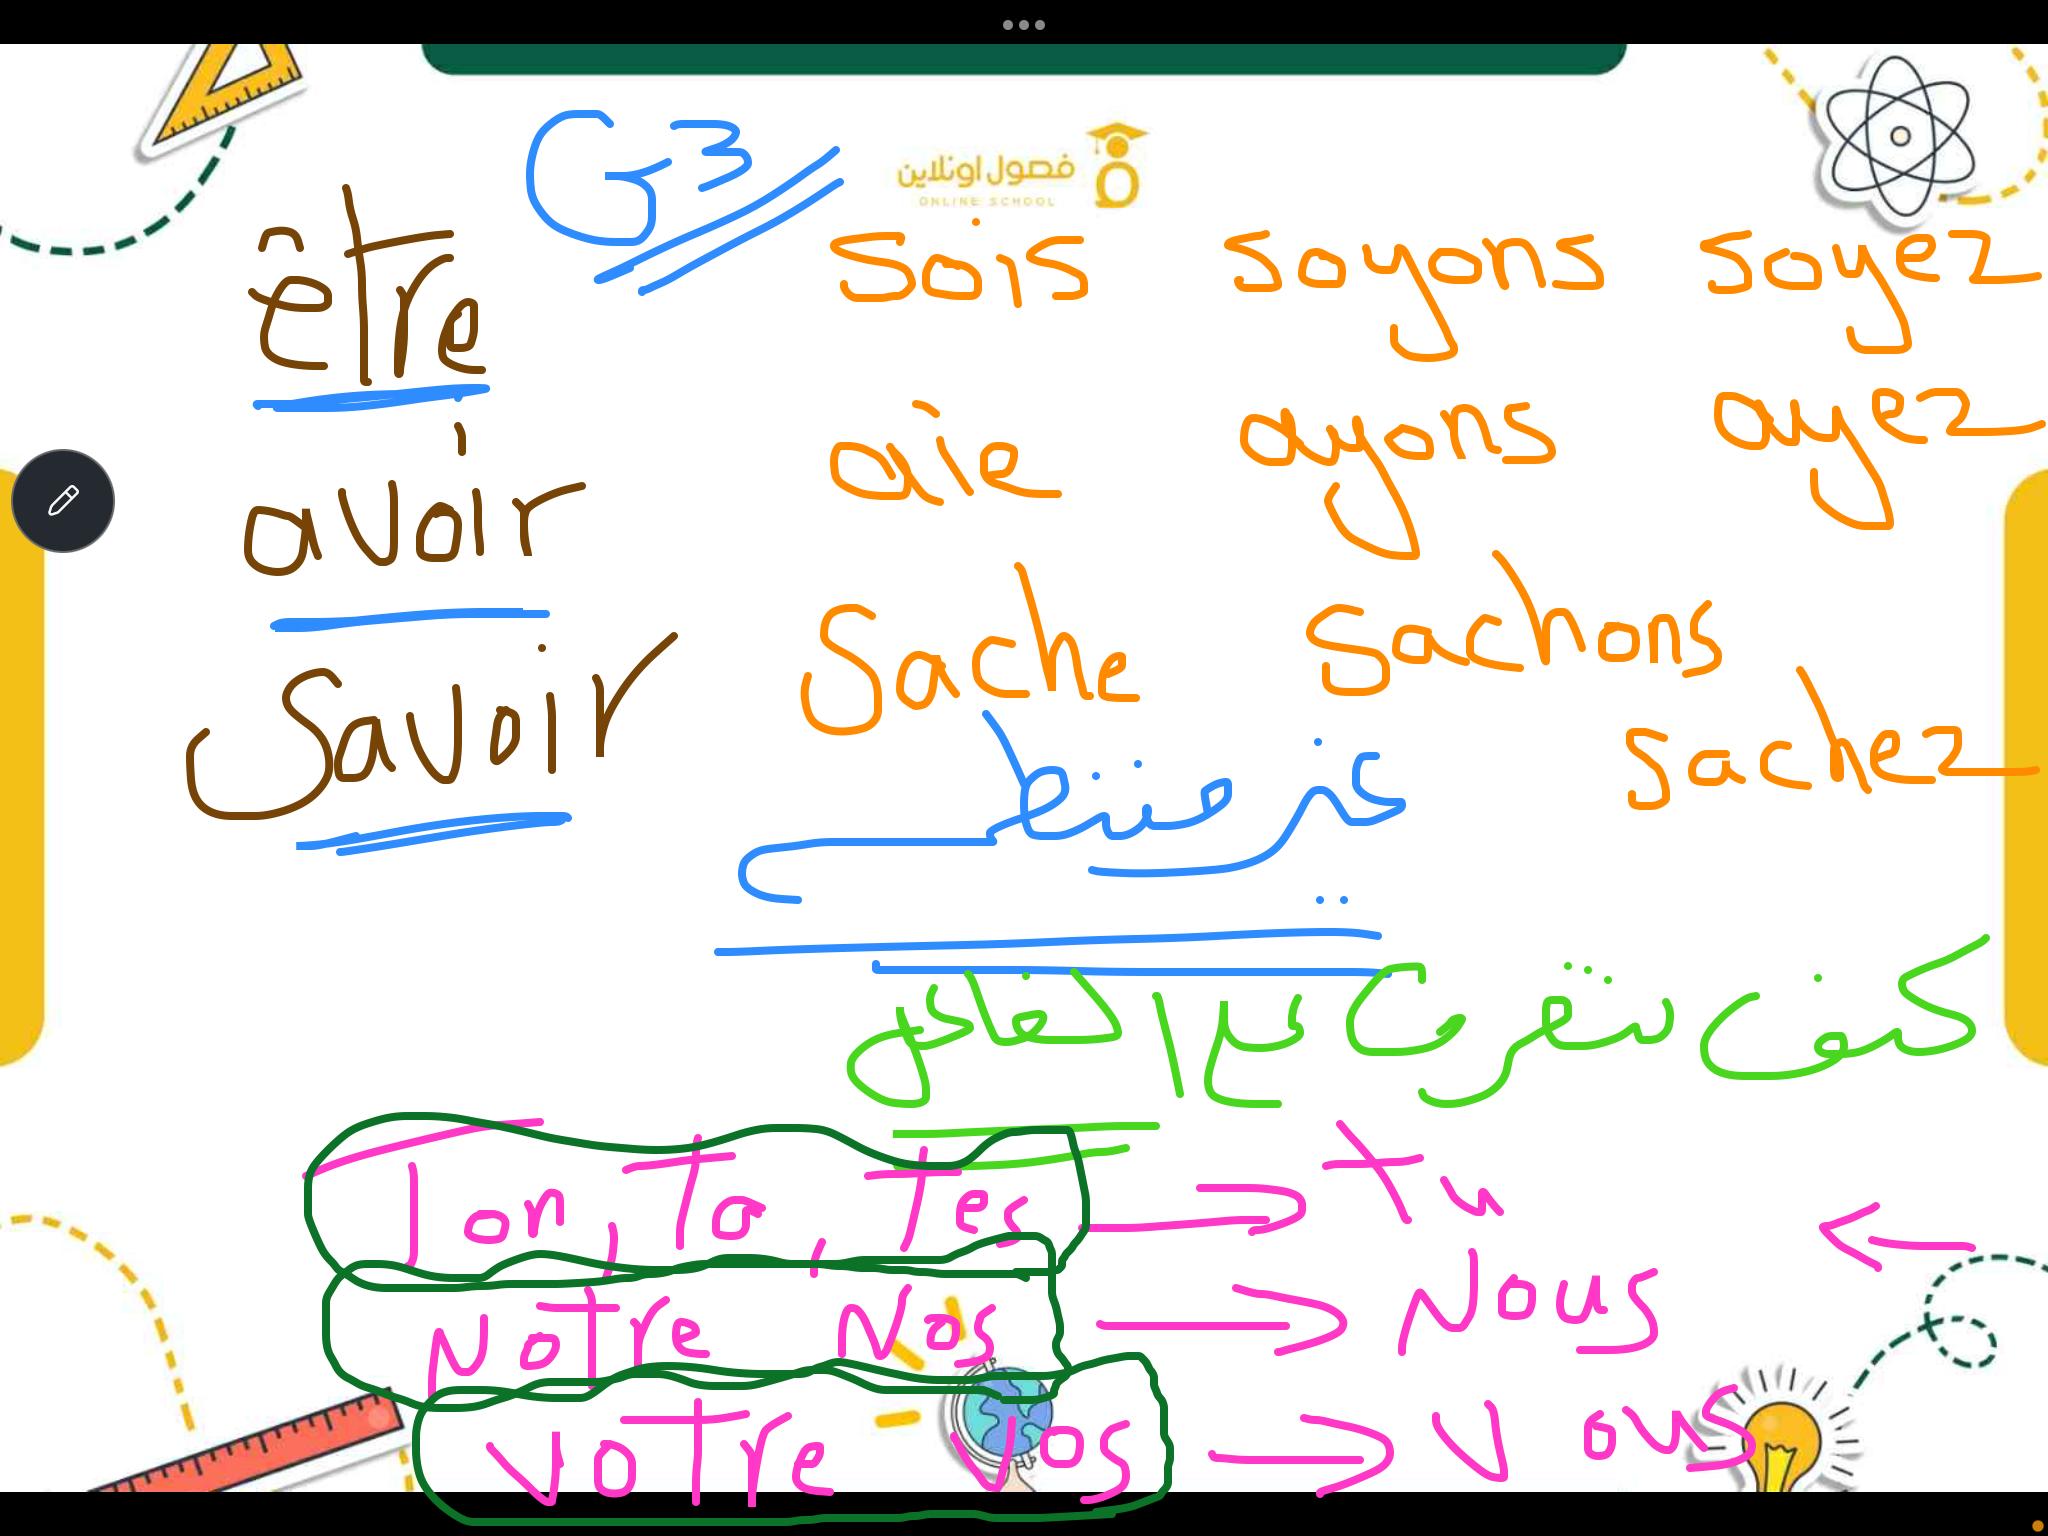 G3
فصول اونلاين
ONLINE SCHOOL
être sois soyons soyez
avoir aie ayons ayez
Savoir Sache Sachons
sachez
غير منتظم
كيف نتعرف على الفاعل
Ton, Ta, Tes → tu ←
Notre Nos → Nous
Votre Vos → Vous